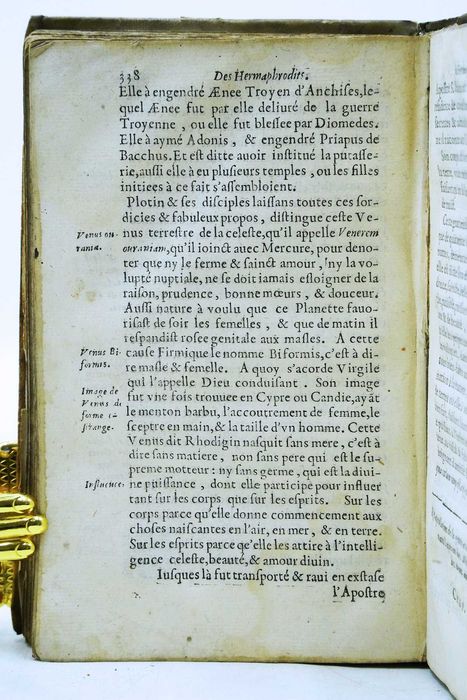 338 Des Hermaphrodits.
Elle à engendré Ænee Troyen d'Anchises, le-
quel Ænee fut par elle deliuré de la guerre
Troyenne, ou elle fut blessee par Diomedes.
Elle à aymé Adonis, & engendré Priapus de
Bacchus. Et est ditte auoir institué la putasse-
rie, aussi elle à eu plusieurs temples, ou les filles
initiees à ce fait s'assembloient.
Plotin & ses disciples laissans toutes ces sor-
dicies & fabuleux propos, distingue ceste Ve-
Venus ou-
rania.
nus terrestre de la celeste, qu'il appelle Venerem
ouraniam, qu'il ioinct auec Mercure, pour deno-
ter que ny le ferme & sainct amour, ny la vo-
lupté nuptiale, ne se doit iamais esloigner de la
raison, prudence, bonne mœurs, & douceur.
Aussi nature à voulu que ce Planette fauo-
risast de soir les femelles, & que de matin il
respandist rosee genitale aux masles. A cette
Venus Bi-
formis.
cause Firmique le nomme Biformis, c'est à di-
re masle & femelle. A quoy s'acorde Virgile
qui l'appelle Dieu conduisant. Son image
Image de
Venus de
forme e-
strange.
fut vne fois trouuee en Cypre ou Candie, ayãt
le menton barbu, l'accoutrement de femme, le
sceptre en main, & la taille d'vn homme. Cette
Venus dit Rhodigin nasquit sans mere, c'est à
dire sans matiere, non sans pere qui est le su-
preme motteur: ny sans germe, qui est la diui-
Influence.
ne puissance, dont elle participé pour influer
tant sur les corps que sur les esprits. Sur les
corps parce qu'elle donne commencement aux
choses naiscantes en l'air, en mer, & en terre.
Sur les esprits parce qe'elle les artire à l'intelli-
gence celeste, beauté, & amour diuin.
Iusques là fut transporté & raui en extase
l'Apostre